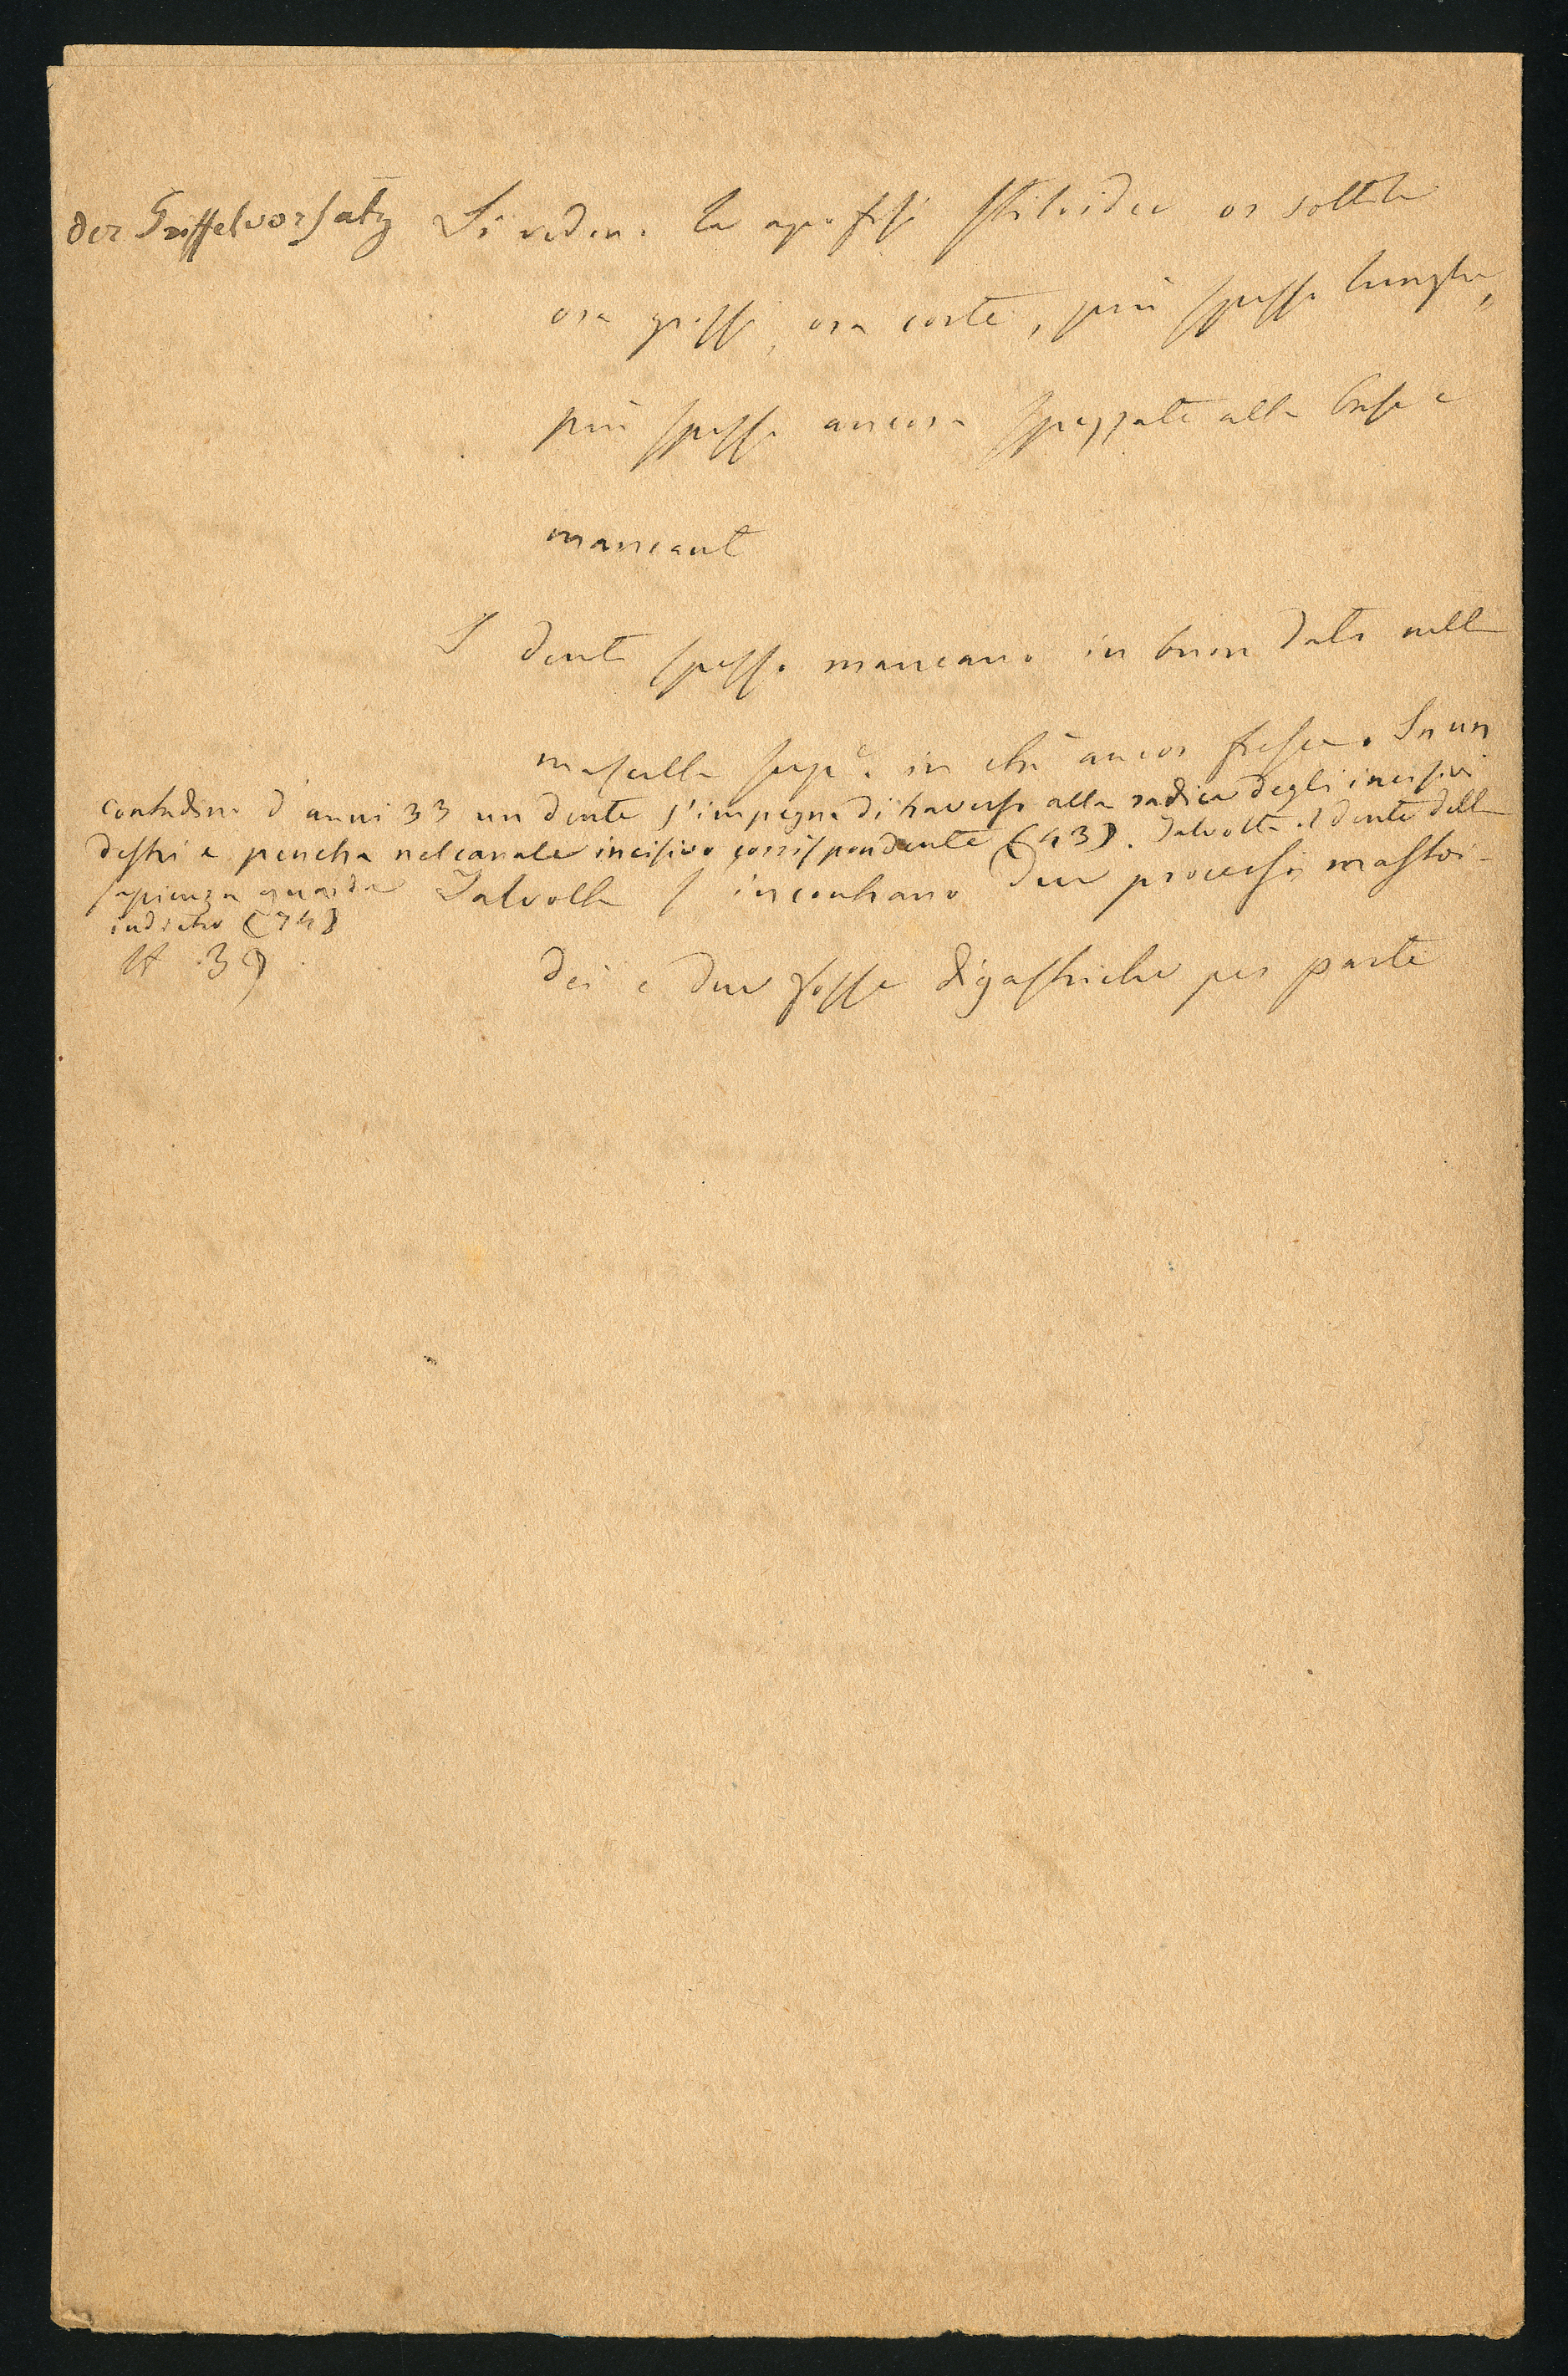 der Griffelvorsatz Si vedono le apofisi stiloidee or sottili
ora grosse, ora corte, più spesso lunghe,
più spesso ancora spezzate alla base e
mancanti
I denti spesso mancano in buon dato nella
mascella supe. in età ancor fresca. In un
contadino d'anni 33 un dente s'impegna di traverso alla radice degli incisivi
destri e penetra nel canale incisivo corrispondente (43). Talvolta il dente della
sapienza guarda
indietro (74)
Talvolta s'incontrano due processi mastoi-
39)
dei e due fosse digastriche per parte